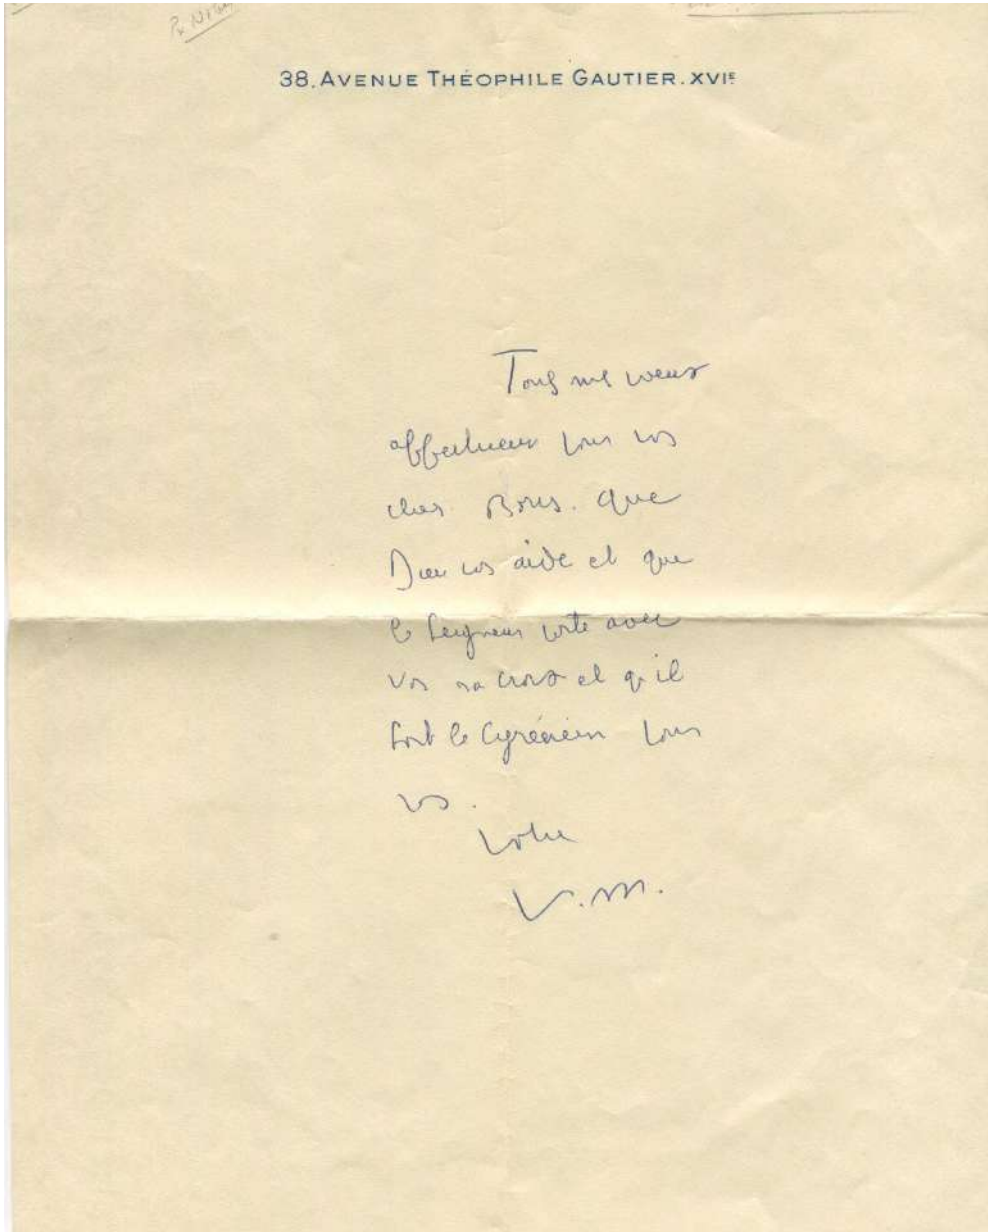 38, AVENUE THÉOPHILE GAUTIER. XVIE
Tous mes voeux
affectueux pour vous
cher Boris. Que
Dieu vous aide et que
le Seigneur porte avec
vous sa croix et qu'il
soit le Cyrénéen pour
vous.
Votre
V.M.